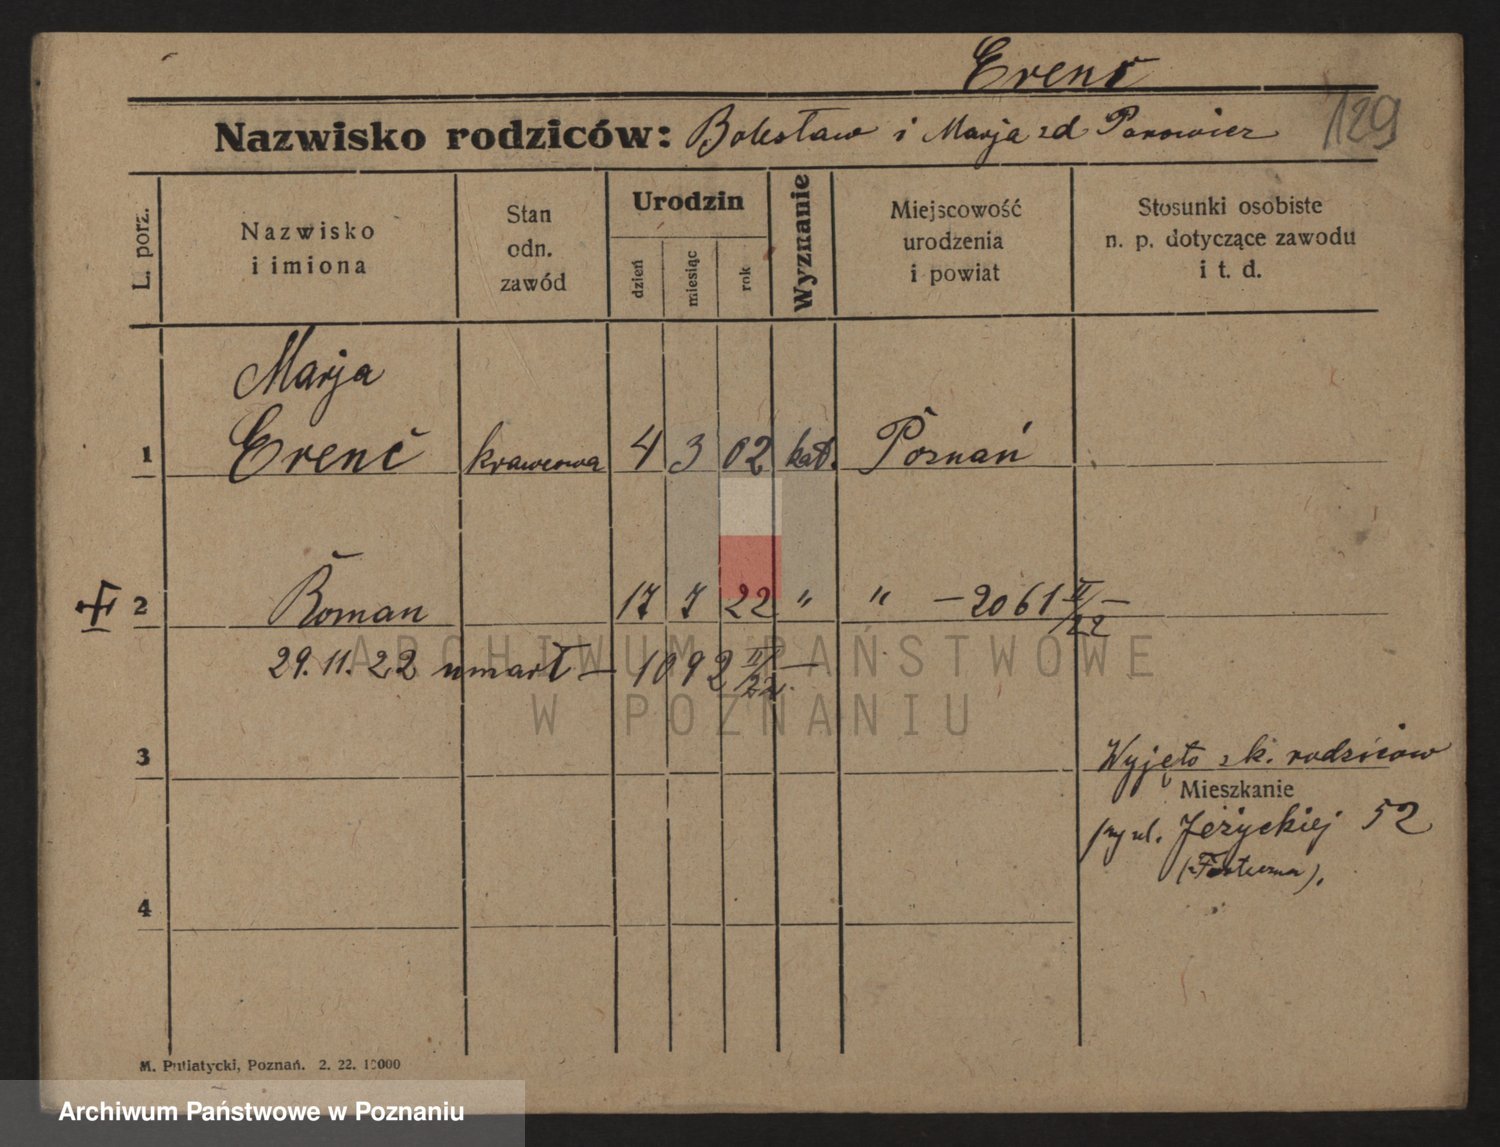 Erenč
129
Nazwisko rodziców: Bolesław i Marja zd
L. porz.
Nazwisko i imiona
Stan odn. zawód
Urodzin
dzień
miesiąc
rok
Wyznanie
Miejscowość urodzenia i powiat
Stosunki osobiste n. p. dotyczące zawodu i t. d.
Marja
1 Erenč krawcowa 4 3 02 kat. Poznań
2 Roman 17 7 22 " " — 2061 II/22 —
29.11.22 umarł — 1092 II/22 —
ARCHIWUM PAŃSTWOWE
W POZNANIU
3
Wyjęto z k. rodziców
Mieszkanie
przy ul. Jeżyckiej 52
(Forteczna).
4
M. Putiatycki, Poznań. 2. 22. 10000
Archiwum Państwowe w Poznaniu